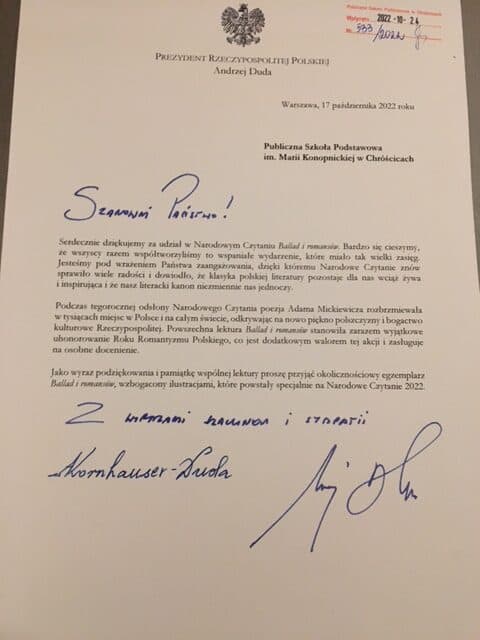 Publiczna Szkoła Podstawowa w Chróścicach
Wpłynęło 2022-10-24
Nr 333/2022
PREZYDENT RZECZYPOSPOLITEJ POLSKIEJ
Andrzej Duda
Warszawa, 17 października 2022 roku
Publiczna Szkoła Podstawowa
im. Marii Konopnickiej w Chróścicach
Szanowni Państwo!
Serdecznie dziękujemy za udział w Narodowym Czytaniu Ballad i romansów. Bardzo się cieszymy,
że wszyscy razem współtworzyliśmy to wspaniałe wydarzenie, które miało tak wielki zasięg.
Jesteśmy pod wrażeniem Państwa zaangażowania, dzięki któremu Narodowe Czytanie znów
sprawiło wiele radości i dowiodło, że klasyka polskiej literatury pozostaje dla nas wciąż żywa
i inspirująca i że nasz literacki kanon niezmiennie nas jednoczy.
Podczas tegorocznej odsłony Narodowego Czytania poezja Adama Mickiewicza rozbrzmiewała
w tysiącach miejsc w Polsce i na całym świecie, odkrywając na nowo piękno polszczyzny i bogactwo
kulturowe Rzeczypospolitej. Powszechna lektura Ballad i romansów stanowiła zarazem wyjątkowe
uhonorowanie Roku Romantyzmu Polskiego, co jest dodatkowym walorem tej akcji i zasługuje
na osobne docenienie.
Jako wyraz podziękowania i pamiątkę wspólnej lektury proszę przyjąć okolicznościowy egzemplarz
Ballad i romansów, wzbogacony ilustracjami, które powstały specjalnie na Narodowe Czytanie 2022.
Z wyrazami szacunku i sympatii
AKornhauser-Duda